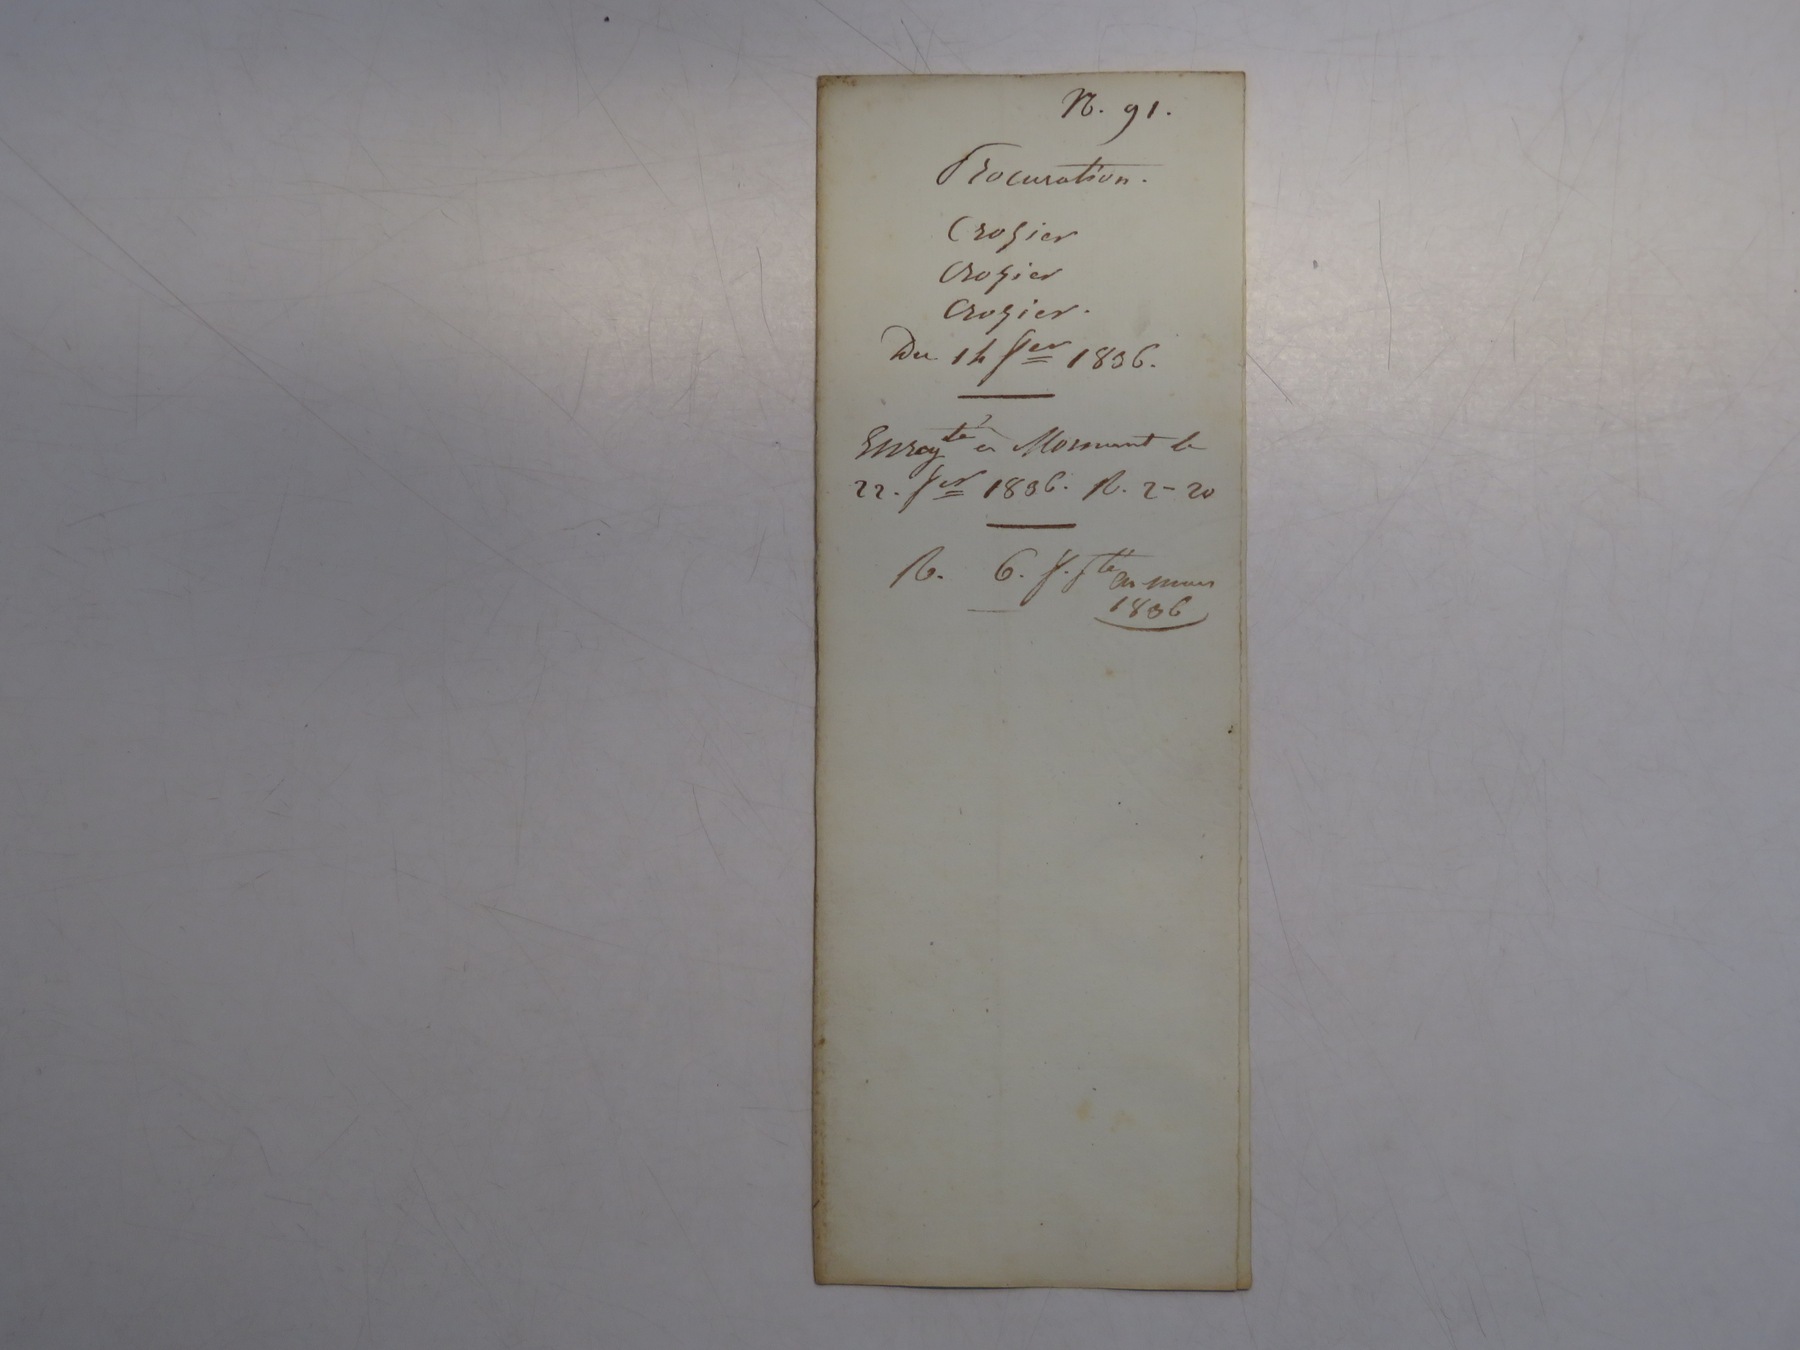 N. 91.
Procuration.
Crozier
Crozier
Crozier.
Du 14 fer 1836.
Enregté à Mornant le
22. fer 1836. R. 2-20
R. 6. f.
en mars
1836